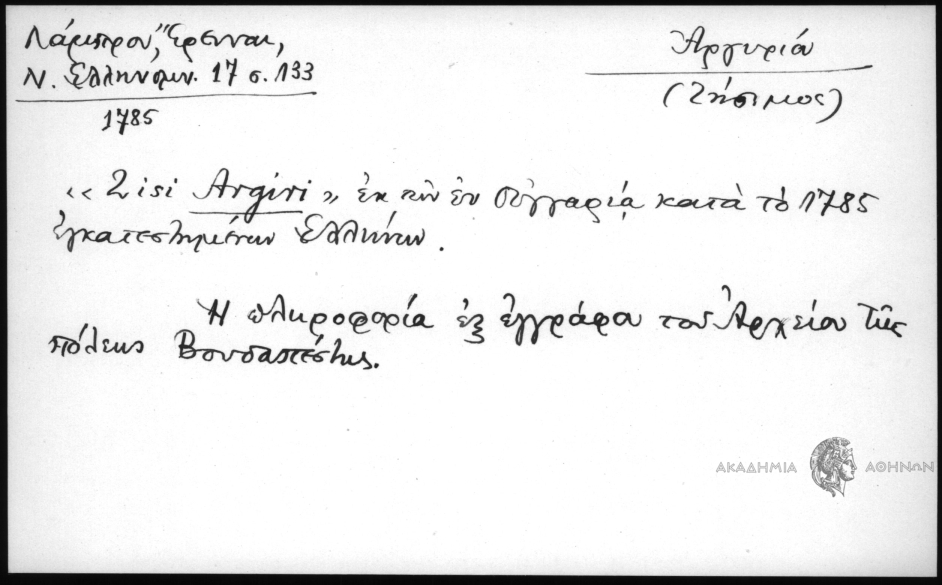 Λάμπρου, Ἔρευναι,
Ν. Ἑλληνομν. 17 σ. 133
1785
Ἀργυριά
(Ζήσιμος)
« Zisi Argiri » ἐκ τῶν ἐν Οὑγγαρίᾳ κατὰ τὸ 1785
ἐγκατεστημένων Ἑλλήνων.
Ἡ πληροφορία ἐξ ἐγγράφου τοῦ Ἀρχείου τῆς
πόλεως Βουδαπέστης.
ΑΚΑΔΗΜΙΑ ΑΘΗΝΩΝ